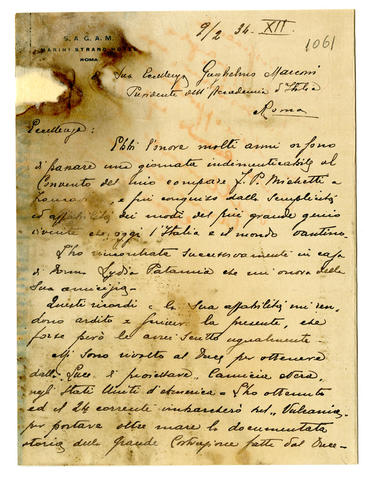 S.A.G.A.M.
MARINI STRAND HOTEL
ROMA
9/2 34. XII.
1061
a Sua Eccellenza Guglielmo Marconi
Presidente dell'Accademia d'Italia
Roma
Eccellenza:
Ebbi l'onore molti anni or sono
di passare una giornata indimenticabile al
Convento del mio compare F. P. Michetti a
e fui conquiso dalla semplicità
ed affabilità dei modi del più grande genio
vivente che oggi l'Italia e il mondo vantino.
L'ho rincontrata successivamente in casa
di Donna Lydia che mi onora della
Sua amicizia.
Questi ricordi e la Sua affabilità mi ren-
dono ardito a scriver la presente, che
forse però le avrei scritto ugualmente.
Mi sono rivolto al Duce per ottenere
dalla Luce di proiettare Camicia Nera,
negli Stati Uniti d'America. L'ho ottenuto
ed il 24 corrente imbarcherò sul "Vulcania"
per portare oltre mare la documentata
storia della Grande Costruzione fatta dal Duce.